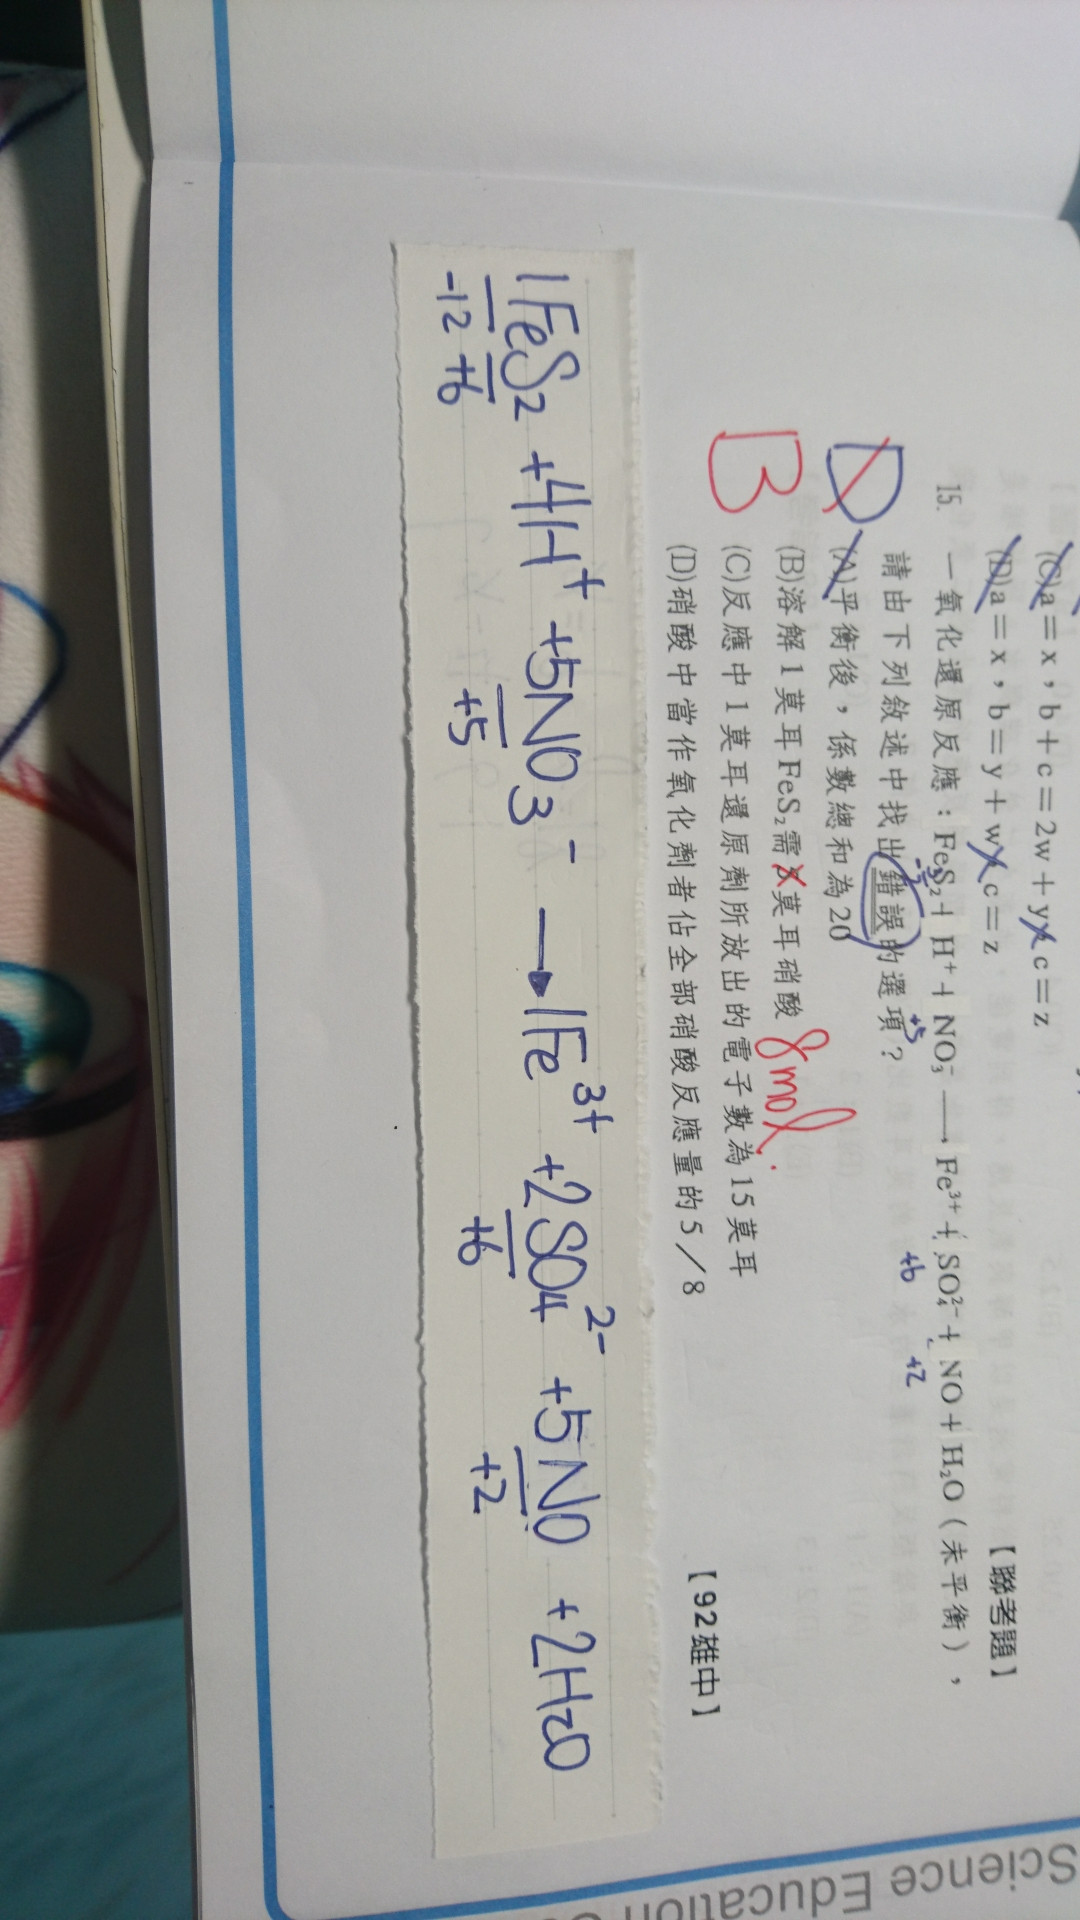 (C)a＝x，b＋c＝2w＋y，c＝z
(D)a＝x，b＝y＋w，c＝z
【聯考題】
15. 一氧化還原反應：FeS₂＋H⁺＋NO₃⁻─→Fe³⁺＋SO₄²⁻＋NO＋H₂O（未平衡），
+5 +6 +2
請由下列敘述中找出錯誤的選項？
D
(A)平衡後，係數總和為20
(B)溶解1莫耳FeS₂需 莫耳硝酸 8mol.
B
(C)反應中1莫耳還原劑所放出的電子數為15莫耳
(D)硝酸中當作氧化劑者佔全部硝酸反應量的5／8
【92雄中】
1FeS₂ +4H⁺ +5NO₃⁻ → 1Fe³⁺ +2SO₄²⁻ +5NO +2H₂O
-12 +6 +5 +6 +2
Science Education